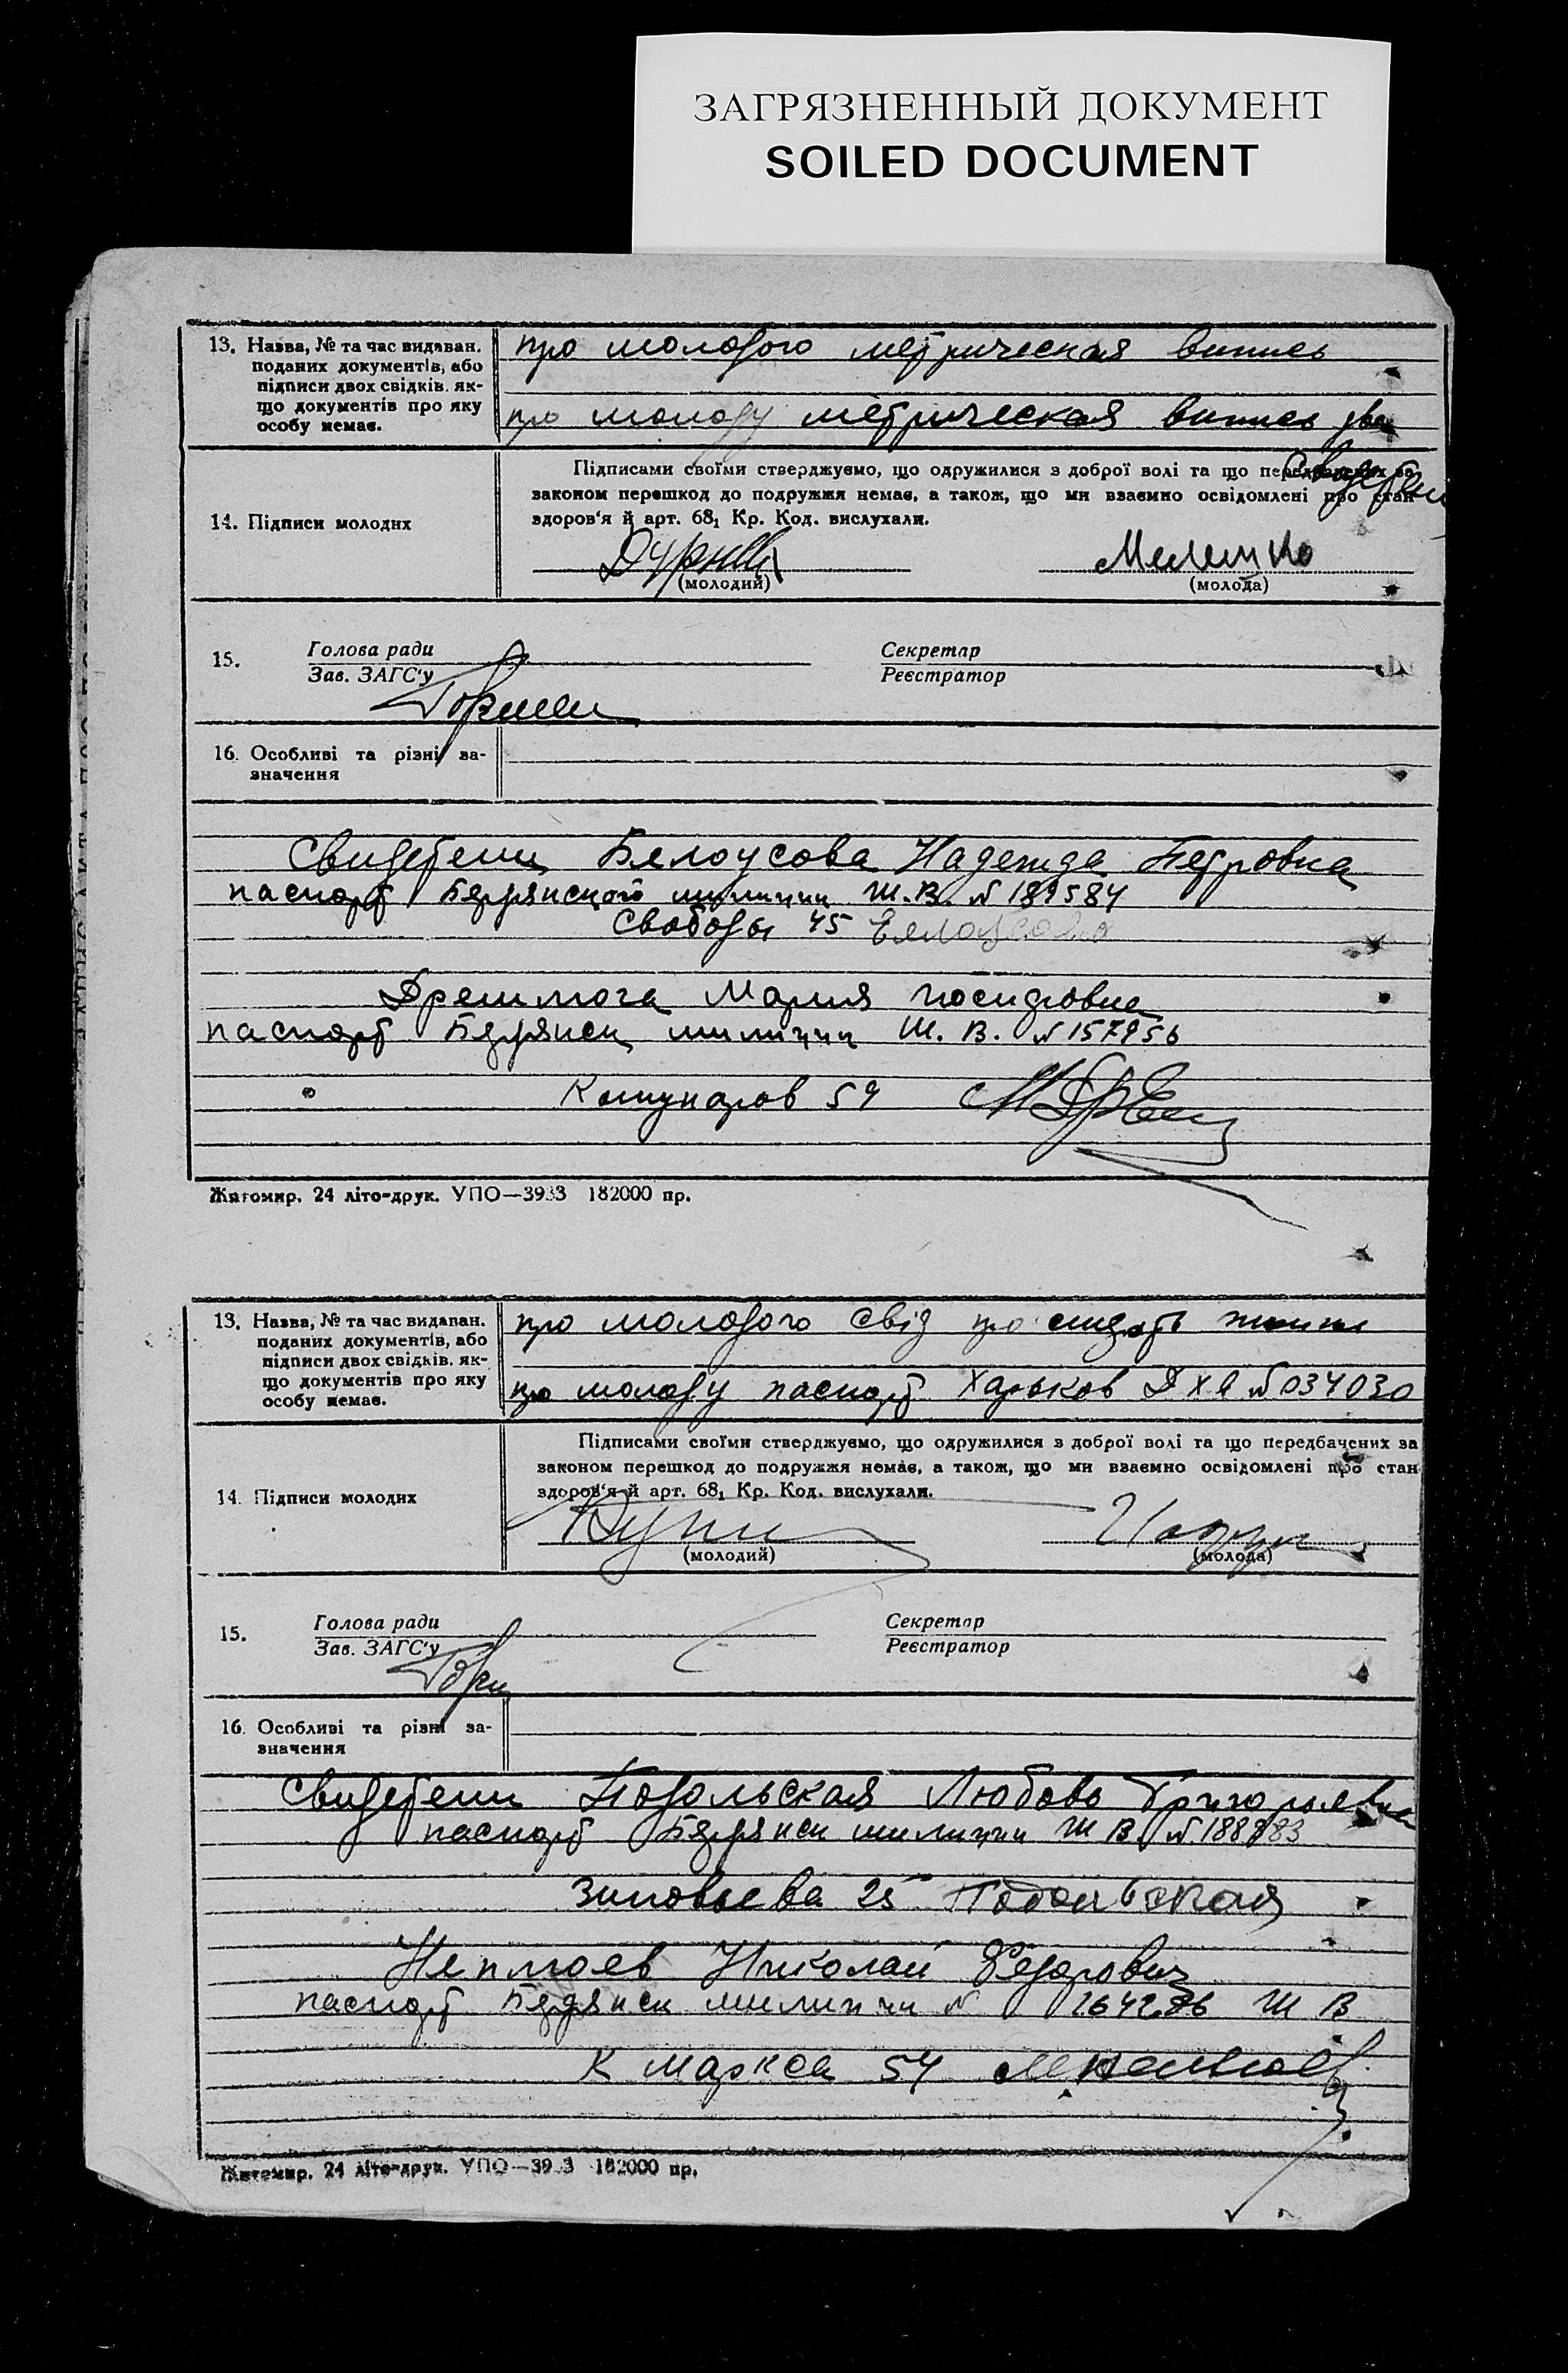 ЗАГРЯЗНЕННЫЙ ДОКУМЕНТ
SOILED DOCUMENT
13. Назва, № та час видаван.
поданих документів, або
підписи двох свідків, як-
що документів про яку
особу немає.
про молодого метрическая випись
про молоду метрическая випись два
Свидетели
14. Підписи молодих
Підписами своїми стверджуємо, що одружилися з доброї волі та що передбачених за
законом перешкод до подружжя немає, а також, що ми взаємно освідомлені про стан
здоров'я й арт. 68₁ Кр. Код. вислухали.
(молодий)
(молода)
15.
Голова ради
Зав. ЗАГС'у
Секретар
Реєстратор
16. Особливі та різні за-
значення
Свидетели Белоусова Надежда Петровна
паспорт Бердянской милиции Ш.В. № 189584
Свободы 45 Белоусова
Мария
паспорт Бердянск милиции Ш.В. № 157956
Комунаров 59
Житомир. 24 літо-друк. УПО—3933 182000 пр.
13. Назва, № та час видаван.
поданих документів, або
підписи двох свідків, як-
що документів про яку
особу немає.
про молодого свід про
про молоду паспорт Харьков ДХЯ № 034030
14. Підписи молодих
Підписами своїми стверджуємо, що одружилися з доброї волі та що передбачених за
законом перешкод до подружжя немає, а також, що ми взаємно освідомлені про стан
здоров'я й арт. 68₁ Кр. Код. вислухали.
(молодий)
(молода)
15.
Голова ради
Зав. ЗАГС'у
Секретар
Реєстратор
16. Особливі та різні за-
значення
Свидетели Подольская Любовь Григорьевна
паспорт Бердянск милиции Ш В № 188883
Зиновьева 25 Подольская
Неплюев Николай Федорович
паспорт Бердянск милиции № 264286 Ш В
К Маркса 54
Житомир. 24 літо-друк. УПО—3933 182000 пр.